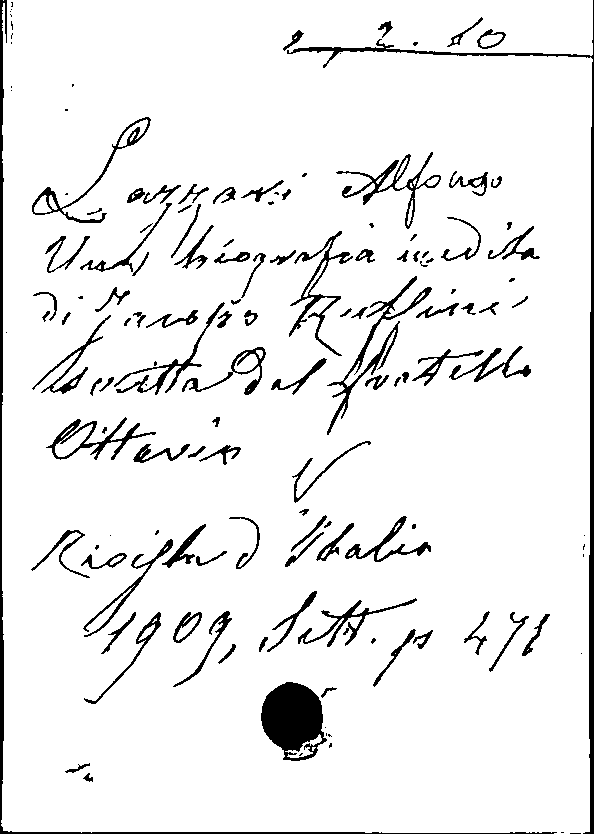 2. 2. 10
Lazzari Alfonso
Una biografia inedita
di Jacopo Ruffini
scritta dal fratello
Ottavio
Rivista d'Italia
1909, Sett. p 471